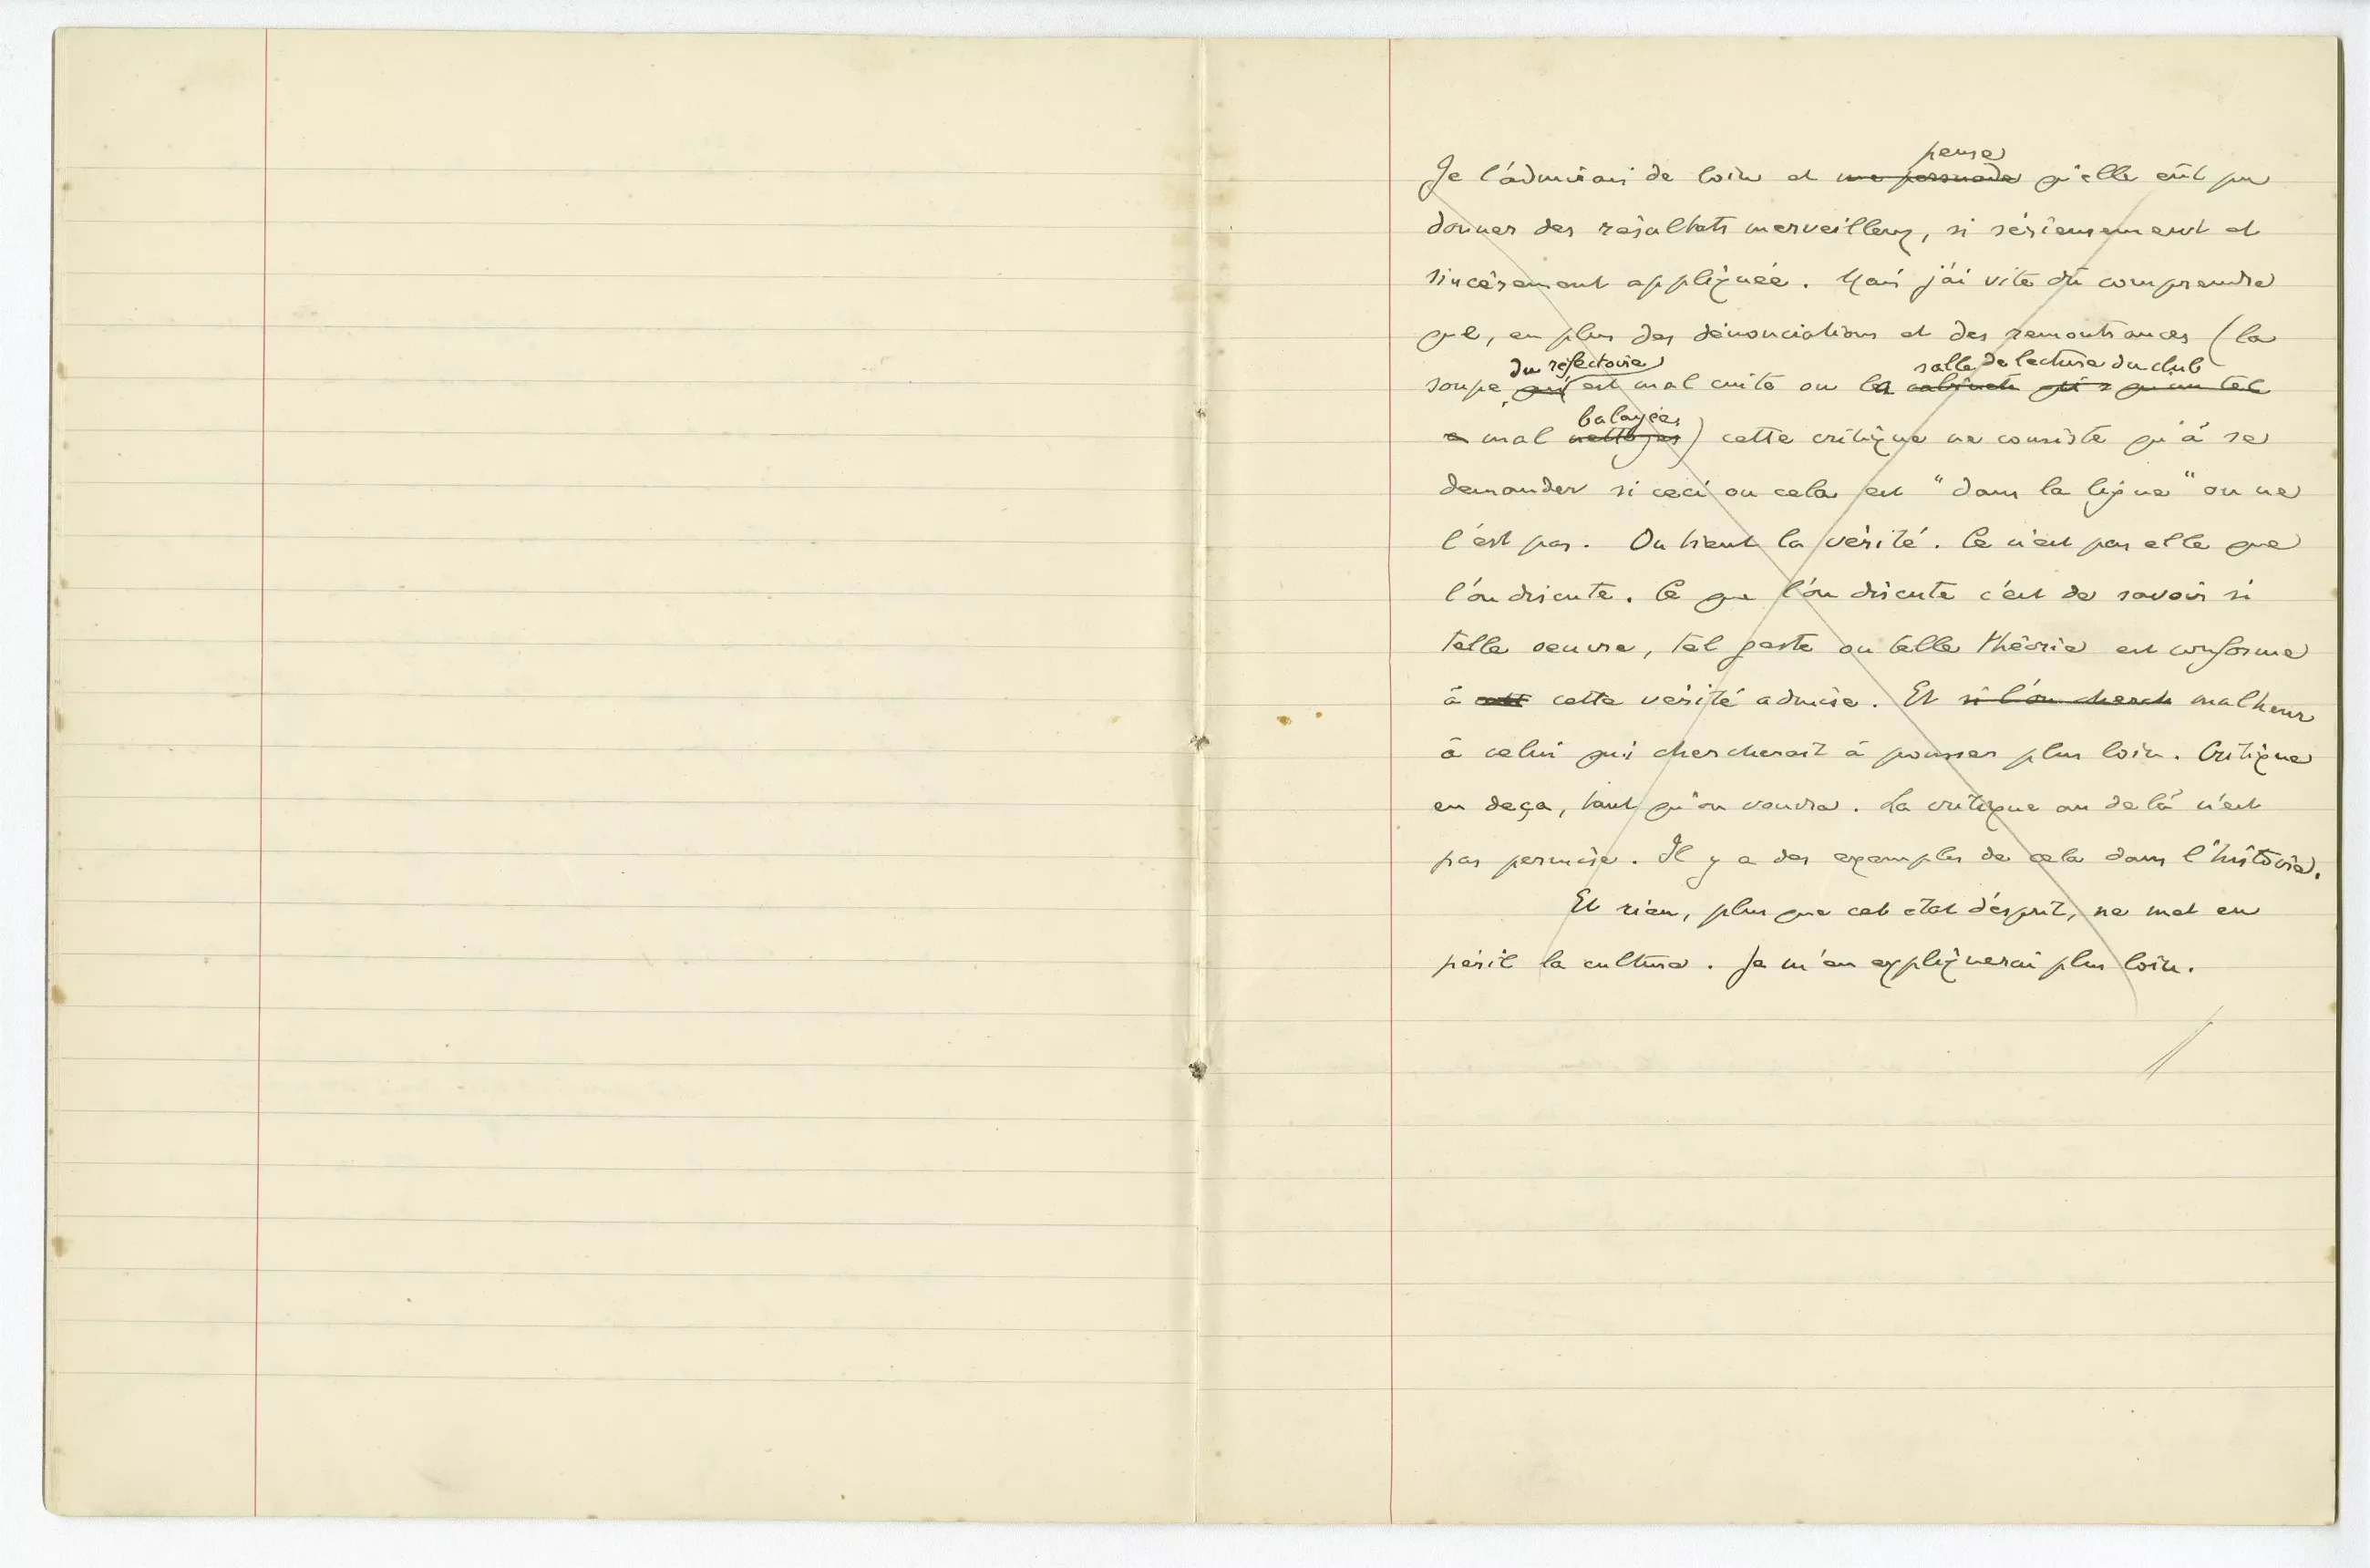 Je l'admirais de loin et me persuade pense qu'elle eût pu
donner des résultats merveilleux, si sérieusement et
sincèrement appliquée. Mais j'ai vite dû comprendre
que, en plus des dénonciations et des remontrances (la
soupe qui du réfectoire est mal cuite ou la cabinets salle de lecture du club qu'un tel
a mal nettoyés balayée) cette critique ne consiste qu'à se
demander si ceci ou cela est "dans la ligne" ou ne
l'est pas. On tient la vérité. Ce n'est pas elle que
l'on discute. Ce que l'on discute c'est de savoir si
telle oeuvre, tel geste ou telle théorie est conforme
à cette vérité admise. Et si l'on cherch malheur
à celui qui chercherait à pousser plus loin. Critique
en deça, tant qu'on voudra. La critique au delà n'est
pas permise. Il y a des exemples de cela dans l'histoire.
Et rien, plus que cet état d'esprit, ne met en
péril la culture. Je m'en expliquerai plus loin.